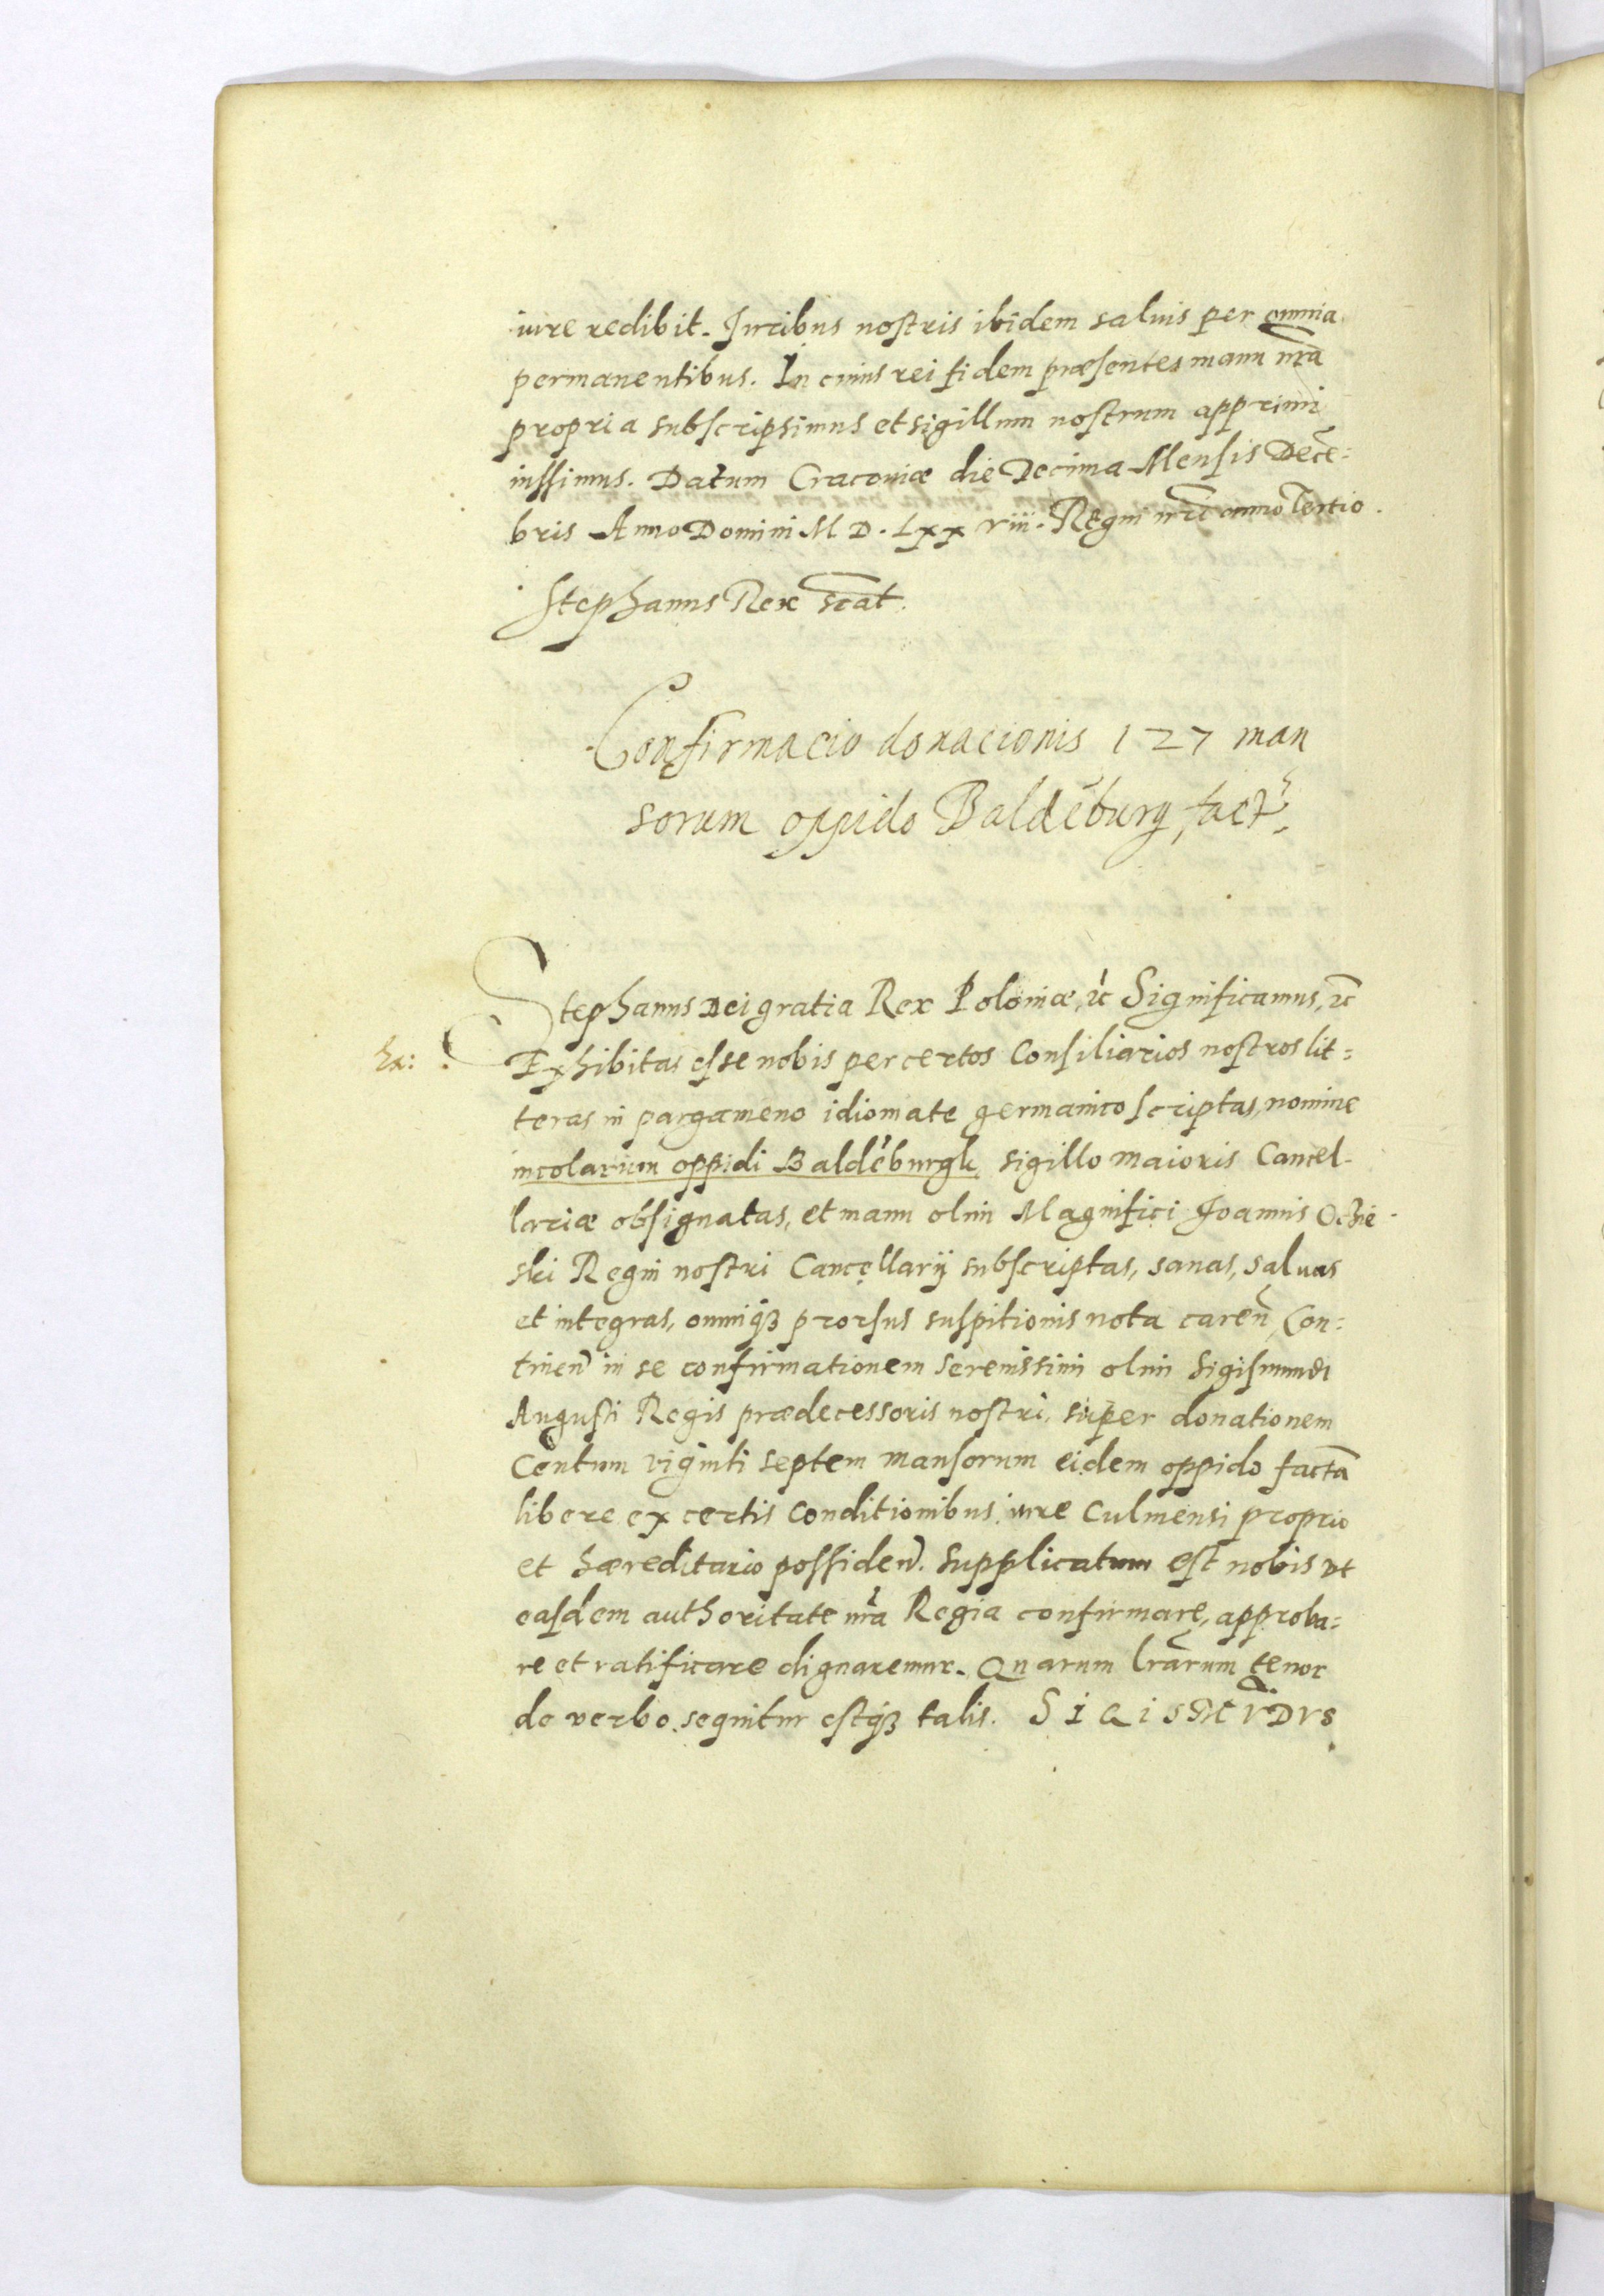 iure redibit. Iuribus nostris ibidem saluis per omnia
permanentibus. In cuius rei fidem præsentes manu nrã
propria subscripsimus et sigillum nostrum apprimi
iussimus. Datum Cracoviæ die Decima Mensis Decē=
bris Anno Domini M D. Lxx viii. Regni nri anno Tertio.
Stephanus Rex scat.
Confirmacio donacionis 127 man
sorum oppido Baldēburg fact.
Stephanus Dei gratia Rex Poloniæ, ꝛc Significamus, ꝛc
Exhibitas esse nobis per certos Consiliarios nostros lit=
teras in pargameno idiomate germanico scriptas, nomine
incolarum oppidi Baldēburgk sigillo maioris Cancel-
lariæ obsignatas, et manu olim Magnifici Joannis Ochie-
ski Regni nostri Cancellarij subscriptas, sanas, saluas
et integras, omniqꝫ prorsus suspitionis nota caren, Con=
tinen in se confirmationem Serenissimi olim Sigismundi
Augusti Regis prædecessoris nostri, super donationem
Centum viginti septem mansorum eidem oppido factã
libere ex certis conditionibus iure Culmensi proprio
et hæreditario possiden. Supplicatum est nobis vt
easdem authoritate nrã Regia confirmare, approba=
re et ratificare dignaremur. Quarum lrarum tenor
de verbo sequitur estqꝫ talis. SIGISMVDVS